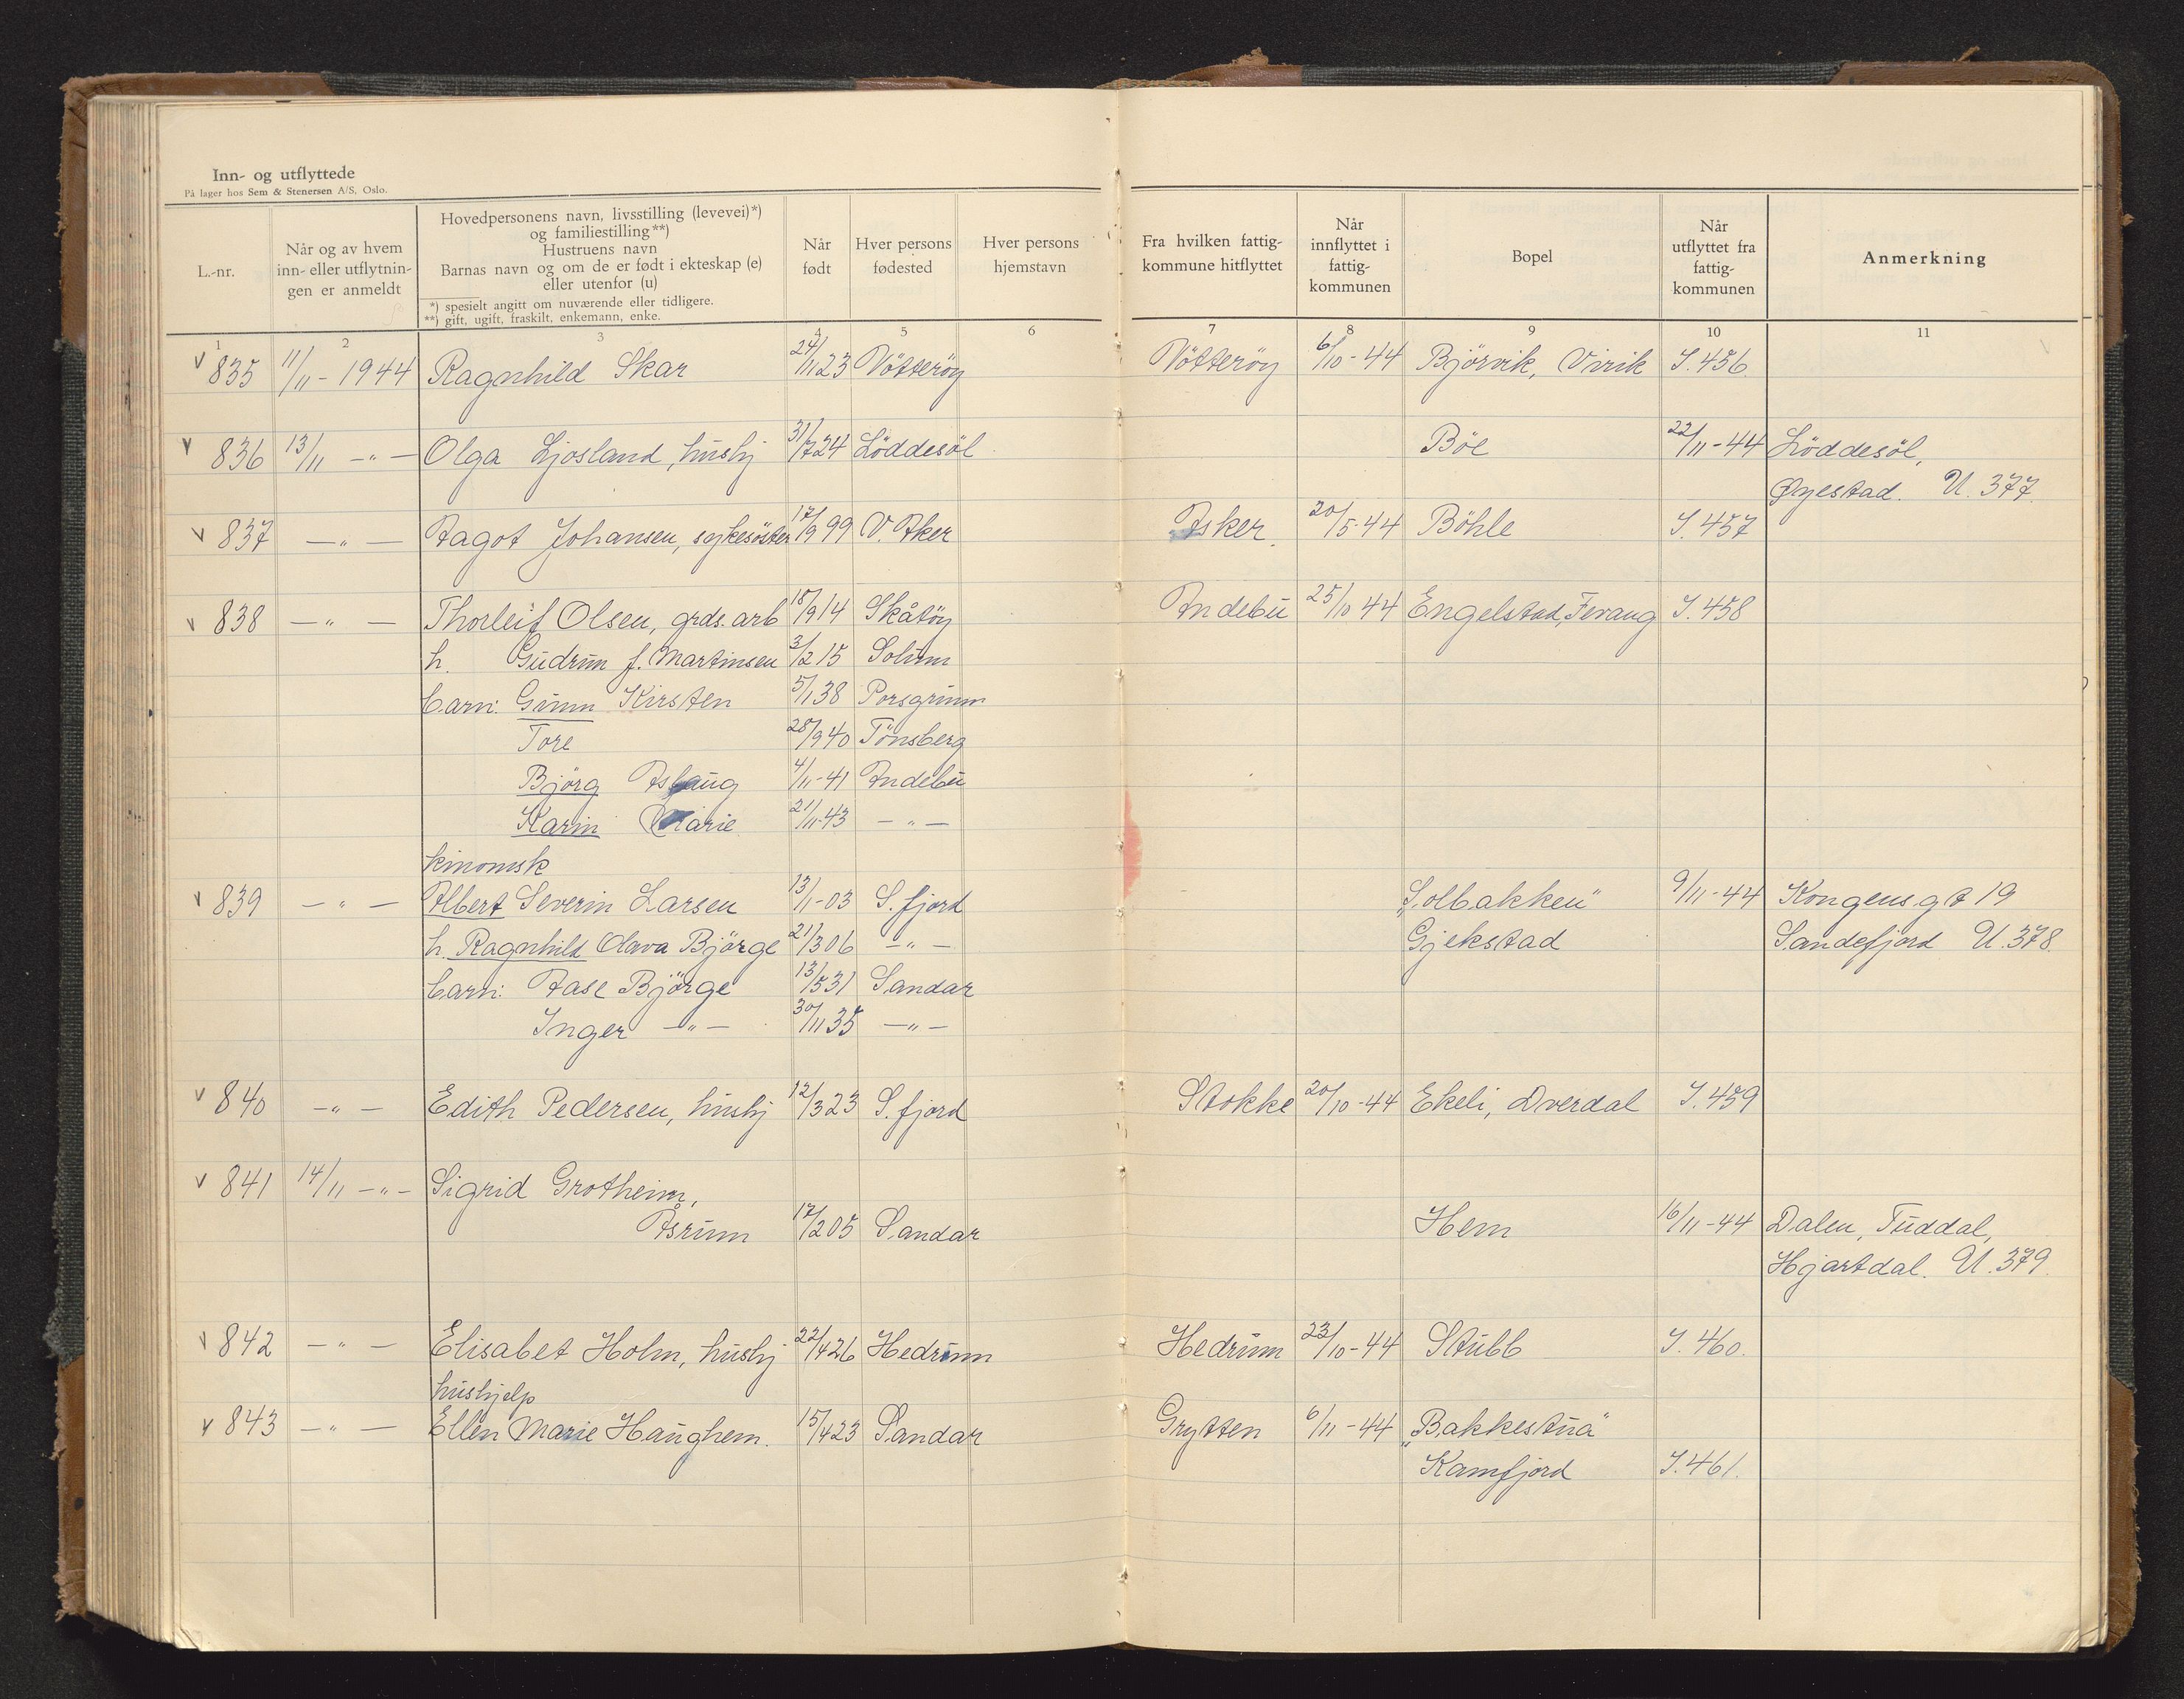 Inn- og utflyttede
På lager hos Sem & Stenersen A/S, Oslo.
L.-nr.
Når og av hvem
inn- eller utflytnin-
gen er anmeldt
Hovedpersonens navn, livsstilling (levevei)*)
og familiestilling**)
Hustruens navn
Barnas navn og om de er født i ekteskap (e)
eller utenfor (u)
*) spesielt angitt om nuværende eller tidligere.
**) gift, ugift, fraskilt, enkemann, enke.
Når
født
Hver persons
fødested
Hver persons
hjemstavn
Fra hvilken fattig-
kommune hitflyttet
Når
innflyttet i
fattig-
kommunen
Bopel
Når
utflyttet fra
fattig-
kommunen
Anmerkning
1 2 3 4 5 6 7 8 9 10 11
v 835 11/11 - 1944 Ragnhild Skar 24/11 23 Nötteröy Nötteröy 6/10-44 Björvik, Virik I.456.
v 836 13/11 -„- Olga Ljosland, hushj 31/7 24 Löddesöl Böe 22/11-44 Löddesöl,
Øyestad. U.377.
v 837 -„- Aagot Johansen, sykesöster 17/9 99 V. Aker Asker. 20/5-44 Böhle I.457
v 838 -„- Thorleif Olsen, grds. arb 18/9 14 Skåtöy Andebu 25/10 44 Engelstad, Fevang I.458
h. Gudrun f. Martinsen 3/2 15 Solum
barn: Gunn Kirsten 5/1 38 Porsgrunn
Tore 28/9 40 Tönsberg
Björg Aslaug 4/11-41 Andebu
Karin Marie 21/11-43 -„-
kinomsk
v 839 -„- Albert Severin Larsen 13/1-03 S.fjord „Solbakken" 9/11-44 Kongens.gt 19
h. Ragnhild Olava Björge 21/3 06 -„- Gjekstad Sandefjord U.378.
barn: Aase Björge 13/5 31 Sandar
Inger -„- 30/11 35 -„-
v 840 -„- Edith Pedersen, hushj 12/3 23 S.fjord Stokke 20/10-44 Ekeli, Dverdal I.459
v 841 14/11 -„- Sigrid Grotheim,
Åsrum 17/2 05 Sandar Hem 16/11-44 Dalen, Tuddal,
Hjartdal. U.379.
v 842 -„- Elisabet Holm, hushj 22/4 26 Hedrum Hedrum 23/10-44 Stubb I.460.
hushjelp
v 843 -„- Ellen Marie Haughem. 15/4 23 Sandar Grytten 6/11-44 „Bakkestua"
Kamfjord I.461.